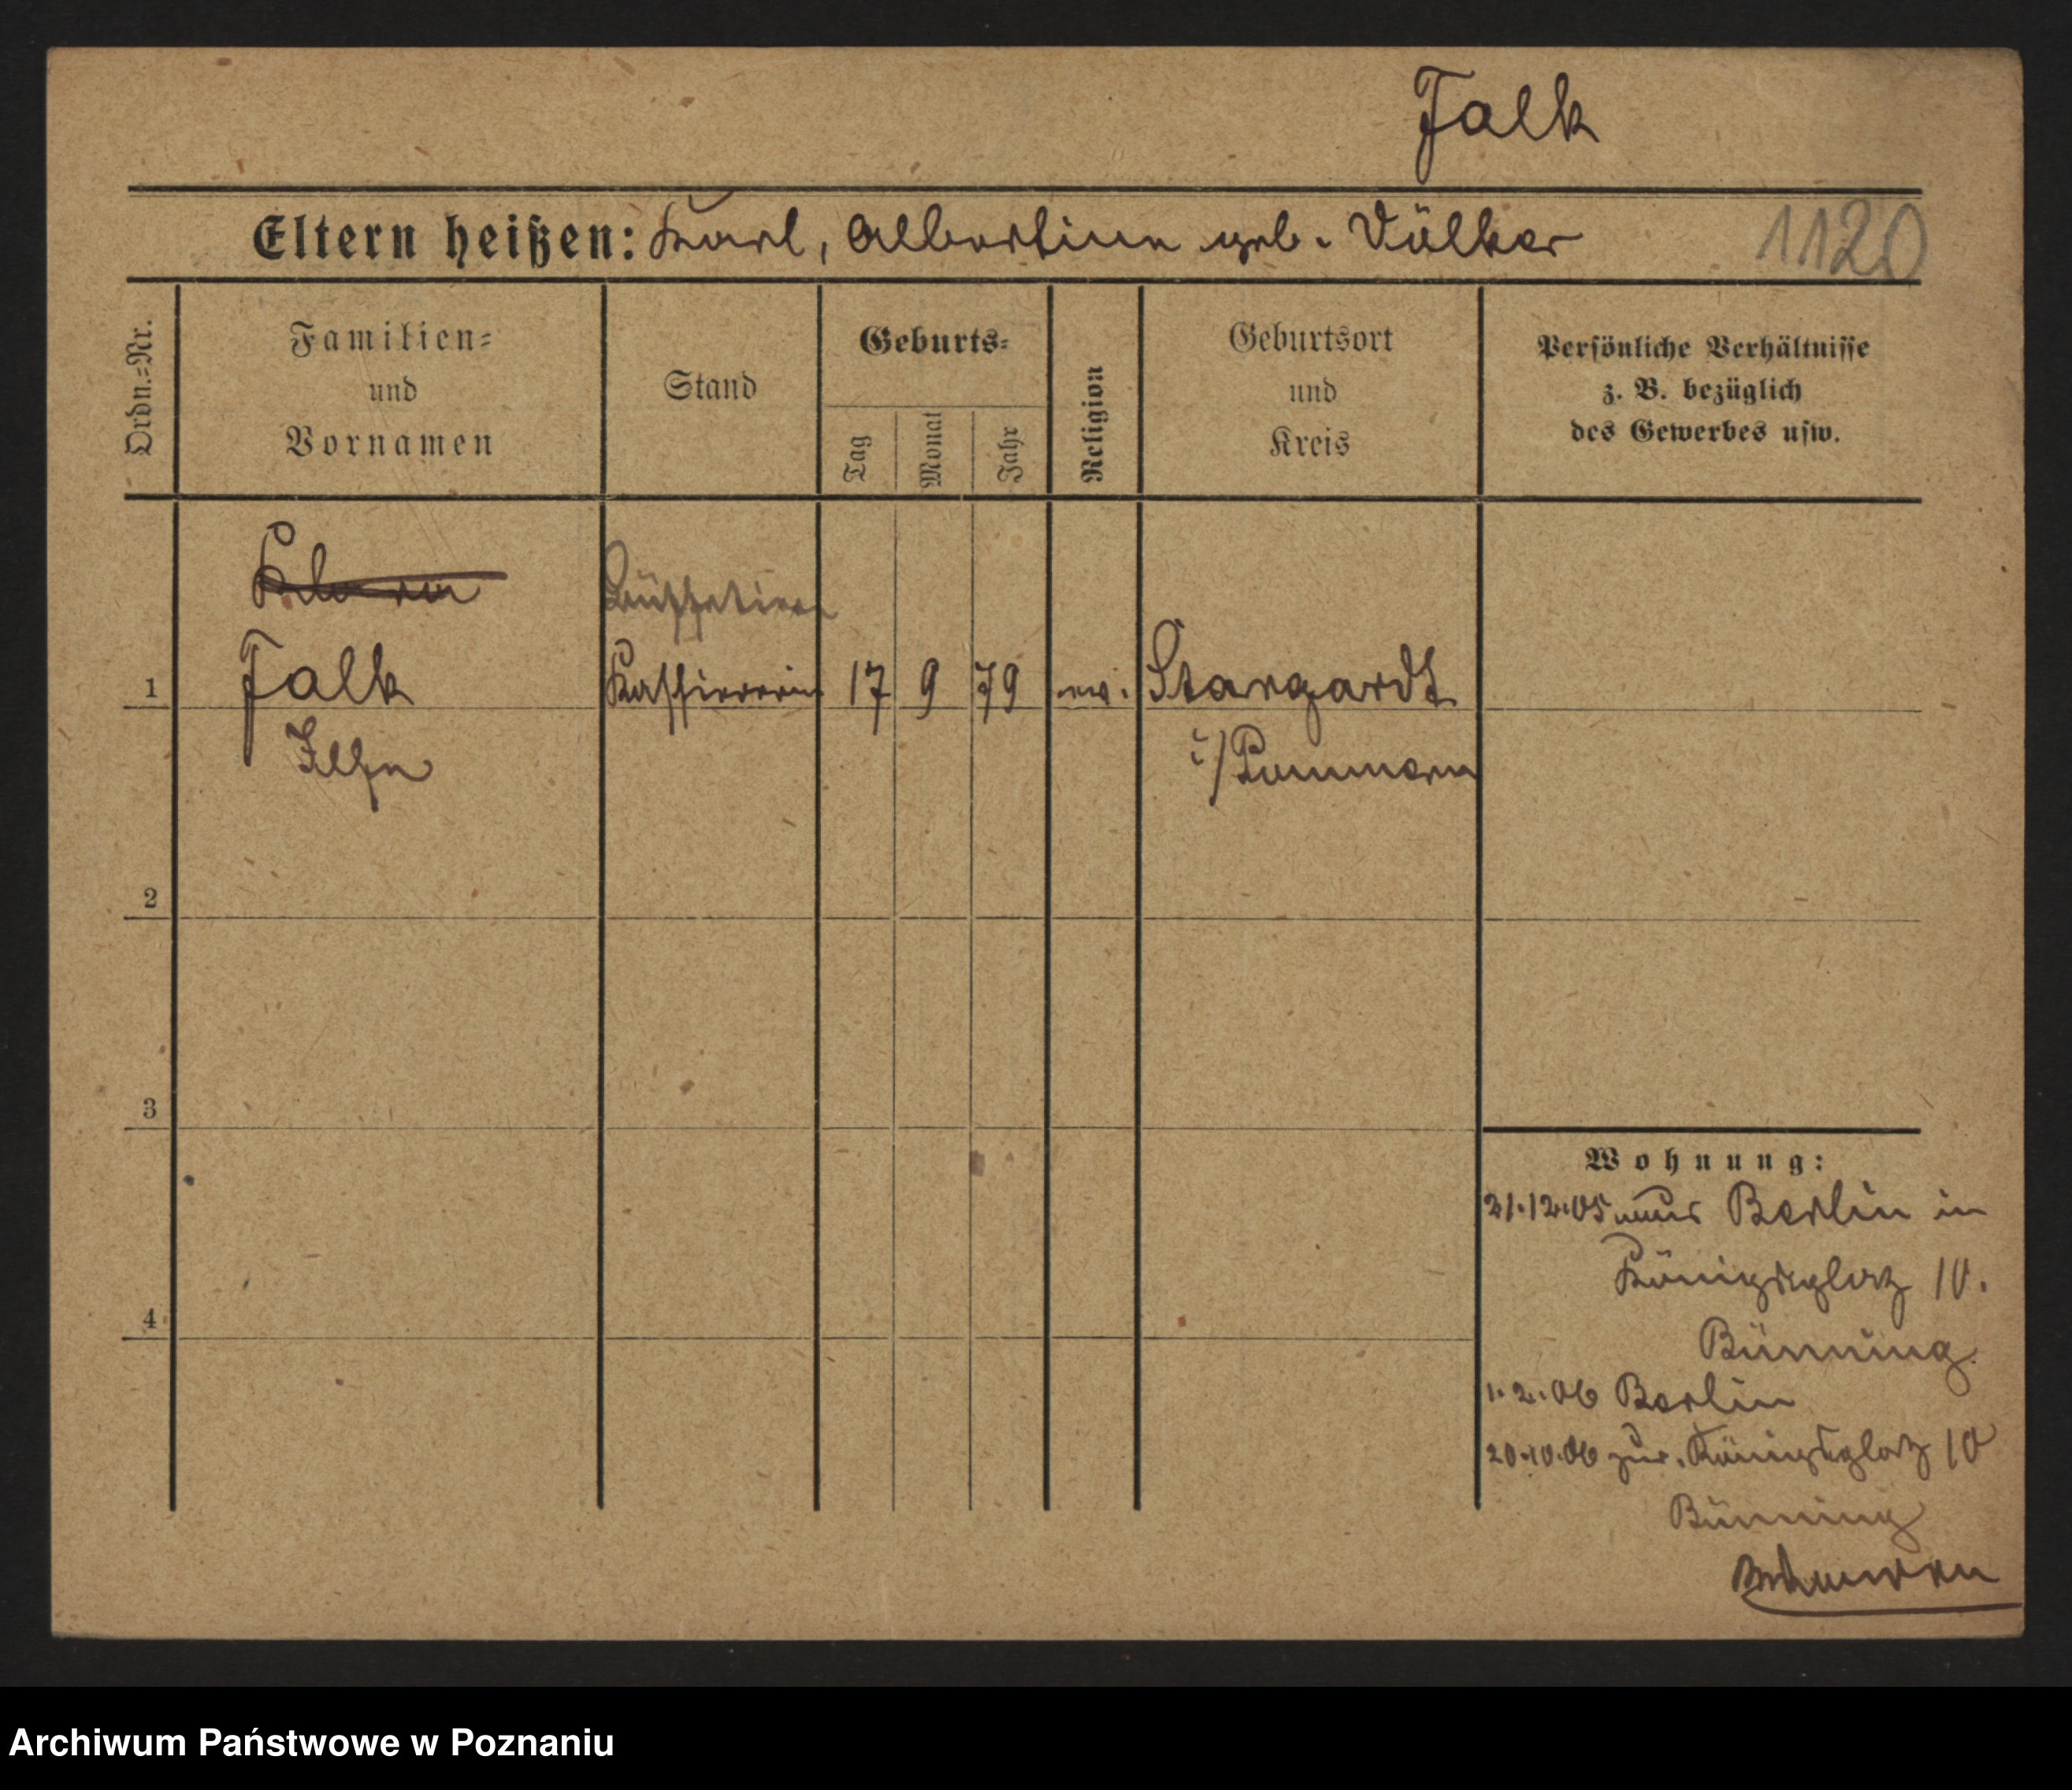 Falk
Eltern heißen: Karl, Albertine geb. Völker
1120
Ordn.=Nr.
Familien=
und
Vornamen
Stand
Geburts=
Tag
Monat
Jahr
Religion
Geburtsort
und
Kreis
Persönliche Verhältnisse
z. B. bezüglich
des Gewerbes usw.
Büffetiere
1 Falk Kassiererin 17 9 79 ev. Stargardt
Ilse i/Pommern
2
3
4
Wohnung:
21.12.05 aus Berlin in
Königsplatz 10.
Bünning.
1.2.06 Berlin
20.10.06 zur. Königsplatz 10
Bünning
Archiwum Państwowe w Poznaniu